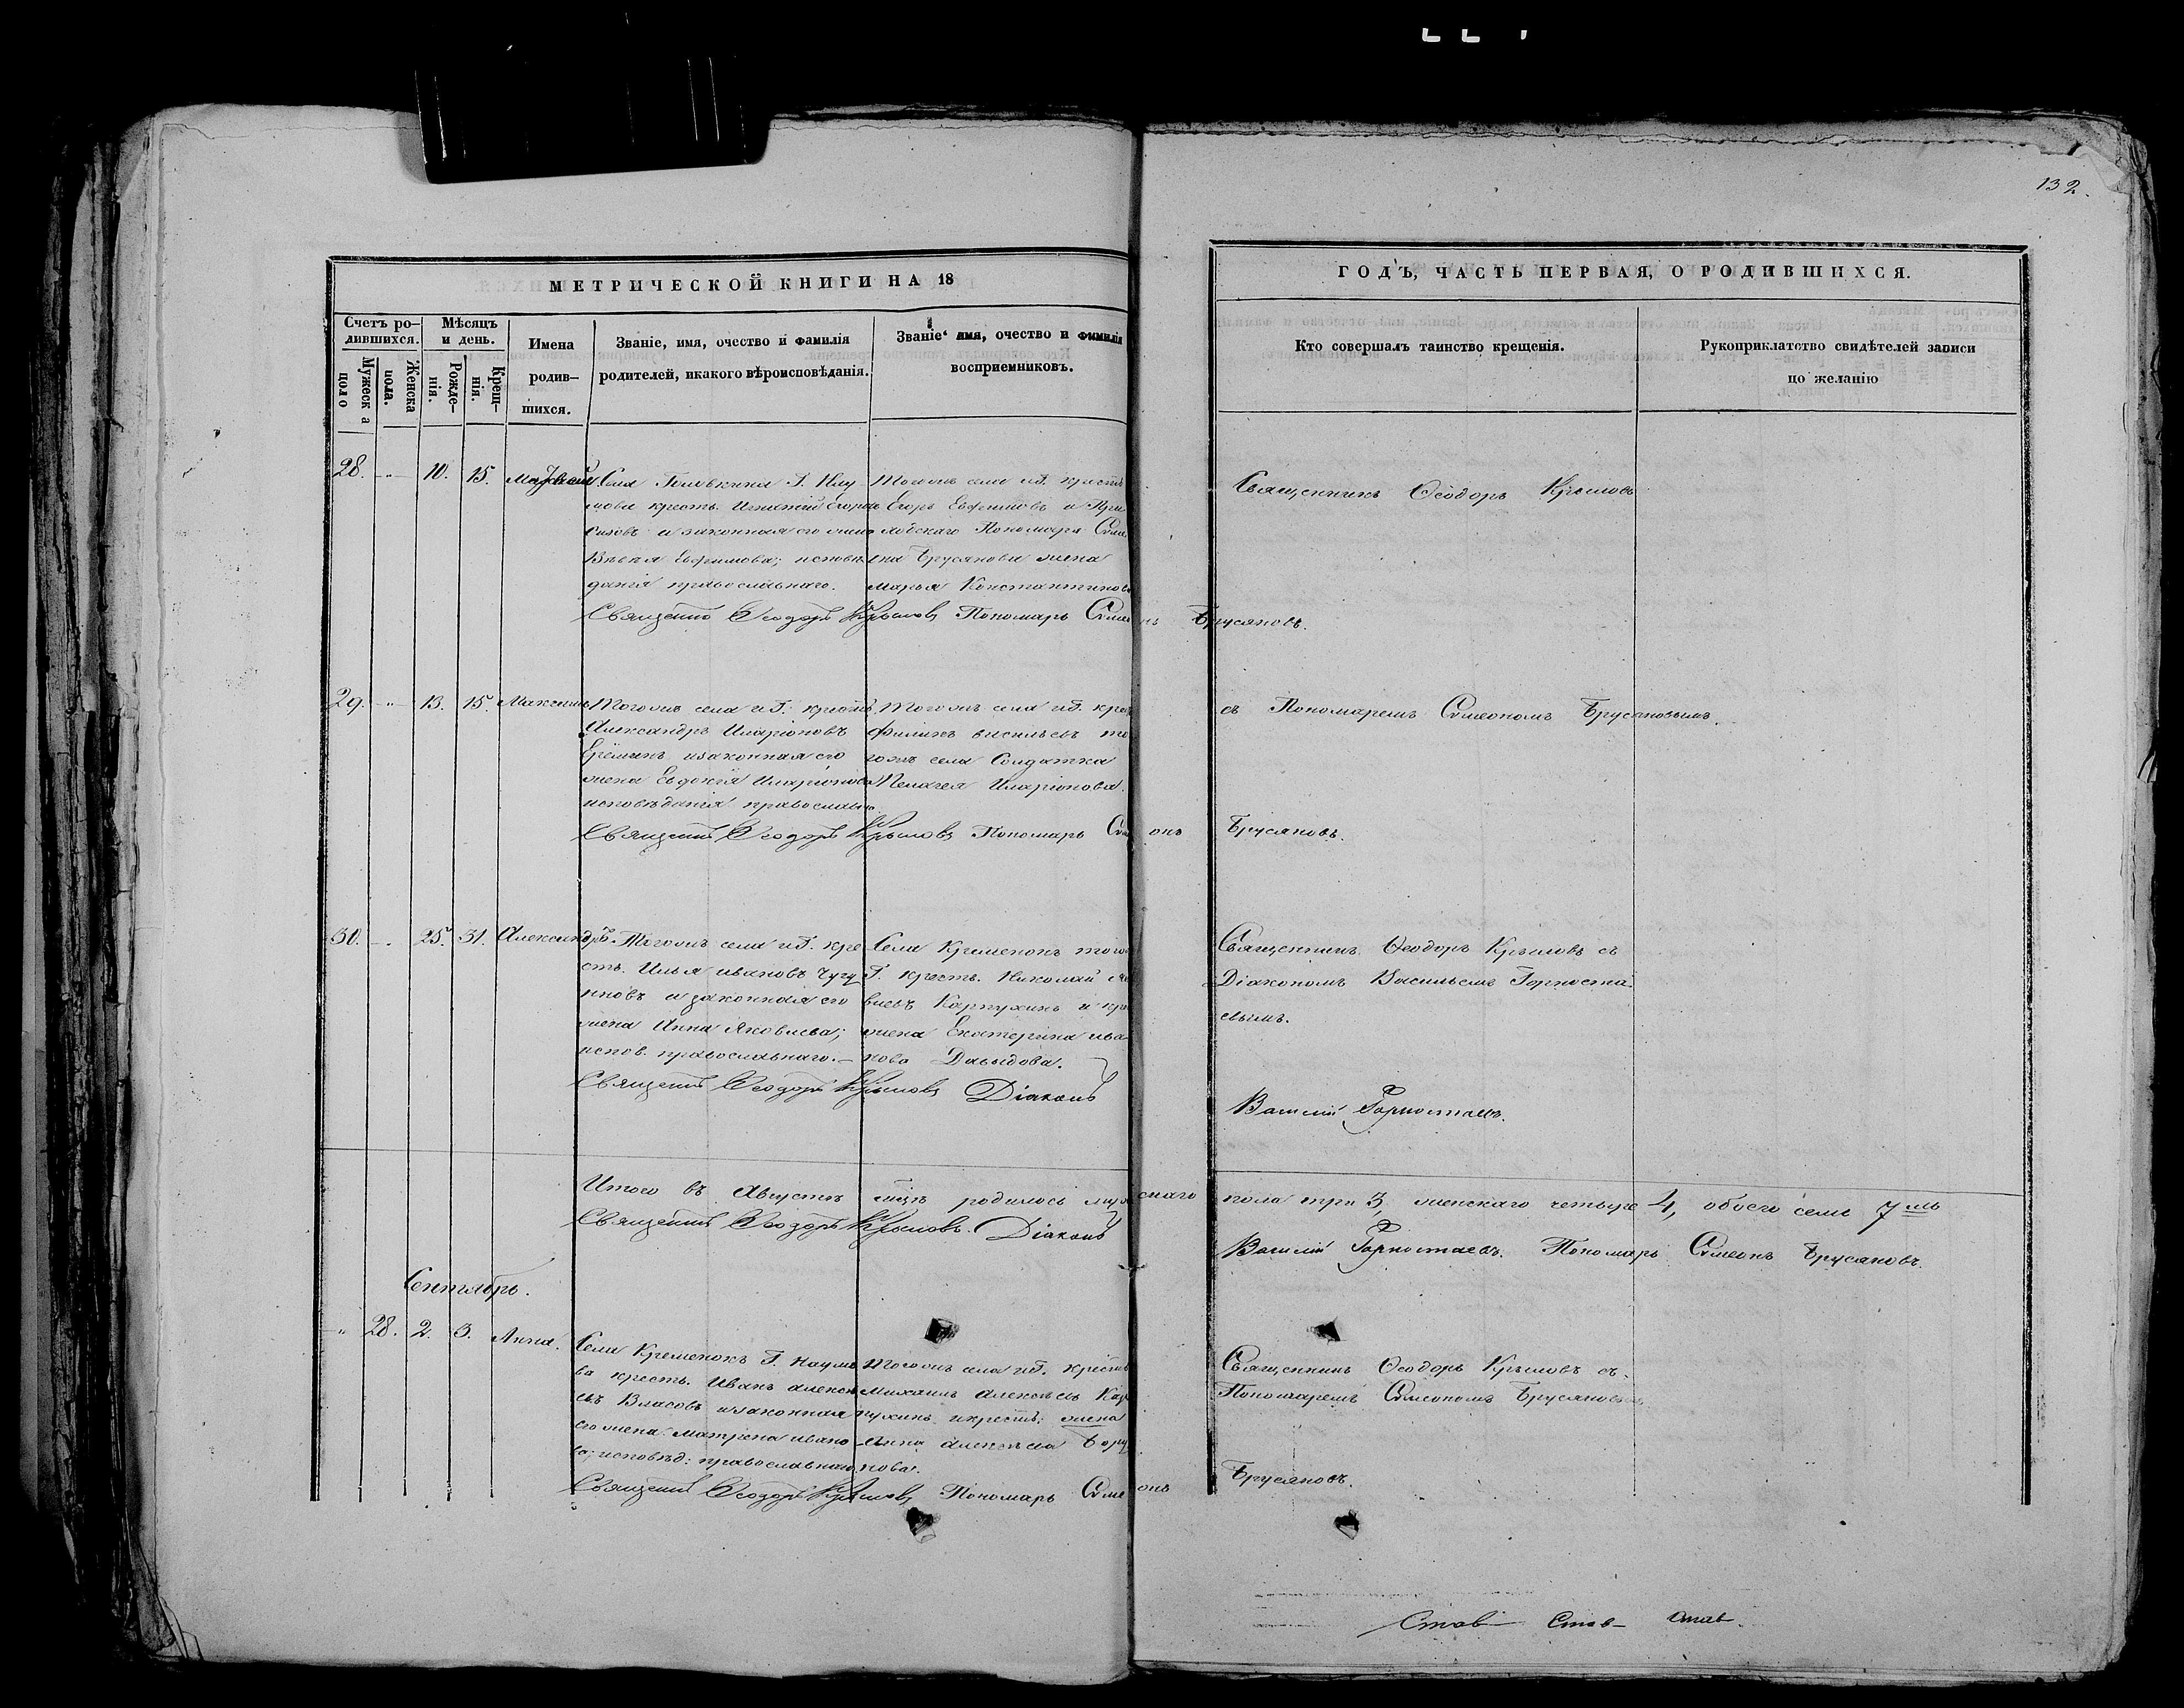 132.
МЕТРИЧЕСКОЙ КНИГИ НА 18
ГОДЪ, ЧАСТЬ ПЕРВАЯ, О РОДИВШИХСЯ.
Счетъ ро-
дившихся.
Мужеска
поло
Женска
пола.
Мѣсяцъ
и день.
Рожде-
нія.
Крещ-
нія.
Имена
родив-
шихся.
Званіе, имя, очество и фамилія
родителей, икакого вѣроисповѣданія.
Званіе имя, очество и фамилія
восприемниковъ.
Кто совершалъ таинство крещенія.
Рукоприклатство свидѣтелей записи
по желанію
28. " 10. 15.
Села Головкина Г. Нау
мова крест. Игнатий Егоров
и законная его жена
Евфимова; исповѣ
данія православнаго.
Тогожъ села иГ. крестъ
Егоръ Евфимовъ и
Пономаря Симе
она Брусянова жена
Марья Константинов
Священникъ Ѳеодоръ Крыловъ
Священно Ѳеодоръ Крыловъ Пономарь Симеонъ Брусяновъ.
29. " 13. 15. Максимъ
Тогожъ села иГ. крестъ
Александръ Иларіоновъ
Ерёминъ изаконная его
жена Евдокія Иларіонова
исповѣданія православно
Тогожъ села иГ. крес
Филипъ Васильевъ то
гожъ села Солдатка
Пелагея Иларіонова.
съ Пономаремъ Симеономъ Брусяновымъ.
Священно Ѳеодоръ Крыловъ Пономарь Симеонъ Брусяновъ.
30. " 25. 31. Александръ
Тогожъ села иГ. кре
стъ. Илья Ивановъ Чугу
новъ и законная его
жена Анна Яковлева;
испов. православнаго.—
Села Кременокъ того
Г. крестъ. Николай
Карпухинъ и кре
жена Екатерина Ива
нова Давыдова.
Священникъ Ѳеодоръ Крыловъ съ
Діакономъ Васильемъ Горноста
евымъ.
Священно Ѳеодоръ Крыловъ Діаконъ Василій Горностаевъ.
Итого въ Августѣ мцѣ родилось мужскаго пола три 3, женскаго четыре 4, обоего семь 7мь
Священно Ѳеодоръ Крыловъ. Діаконъ Василій Горностаевъ. Пономарь Симеонъ Брусяновъ.
Сентябрь.
" 28. 2. 3. Анна.
Села Кременокъ Г. Наумо
ва крестъ. Иванъ Алексѣ
евъ Власовъ изаконная
его жена Матрена Ивано
ва; исповѣд: православнаго
Тогожъ села иГ. крестъ
Михаилъ Алексѣевъ Кар
пухинъ икрестъ: жена
Анна Алексѣева
нова.
Священникъ Ѳеодоръ Крыловъ съ
Пономаремъ Симеономъ Брусяновымъ
Священно Ѳеодоръ Крыловъ Пономарь Симеонъ Брусяновъ.